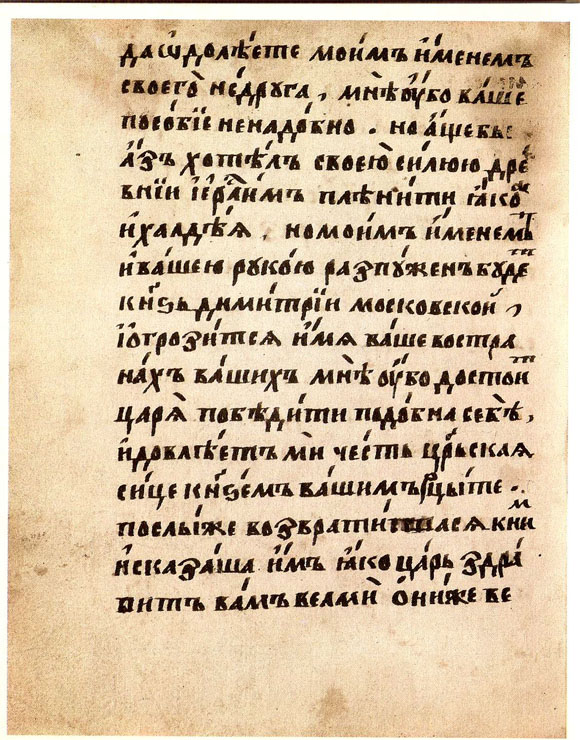 да ѿдолѣете моимъ именемъ
своего недруга, мнѣ ѹбо ваше
пособїе ненадобно. но аще бы
азъ хотѣлъ своею силюю дре
внїи їерлимъ плѣнити ꙗко
и халдѣя, но моимъ именемъ
и вашею рукою разпуженъ будет
кнѕь димитрїи московской,
ї отрозится имя ваше во стра
нахъ вашихъ мнѣ ѹбо достоит
царя побѣдити подобна себѣ,
и довлѣетъ ми честь црьская
сице кнѕемъ вашимъ рцыте.
послы же возвратишася к ним
и сказаша имъ ꙗко царь здра
витъ вамъ велми они же ве